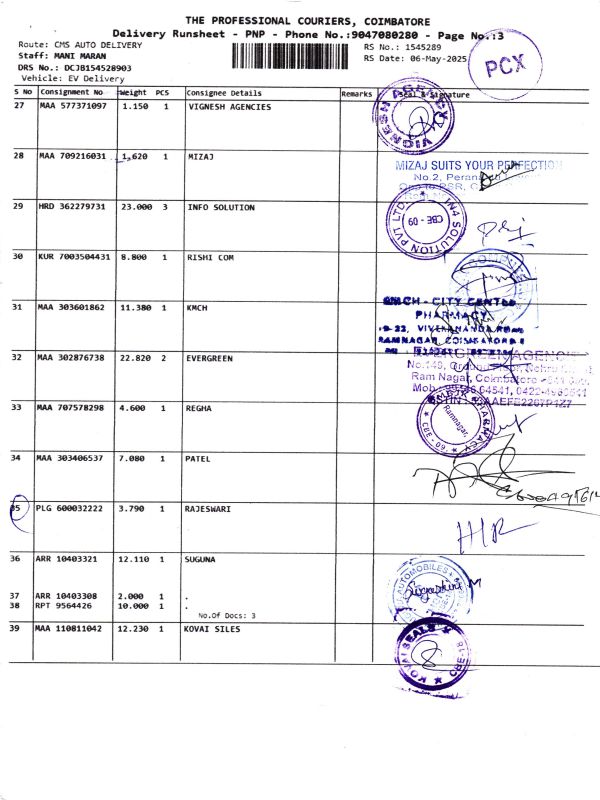 THE PROFESSIONAL COURIERS, COIMBATORE
Delivery Runsheet - PNP - Phone No.:9047080280 - Page No.:3
Route: CMS AUTO DELIVERY
Staff: MANI MARAN
DRS No.: DCJB154528903
Vehicle: EV Delivery
RS No.: 1545289
RS Date: 06-May-2025
PCX
S No Consignment No Weight PCS Consignee Details Remarks Seal & Signature
27 MAA 577371097 1.150 1 VIGNESH AGENCIES
VIGNESH AGENCY
28 MAA 709216031 1,620 1 MIZAJ
MIZAJ SUITS YOUR PERFECTION
No.2,
29 HRD 362279731 23.000 3 INFO SOLUTION
IN4 SOLUTION PVT LTD.
CBE - 09
30 KUR 7003504431 8.800 1 RISHI COM
31 MAA 303601862 11.380 1 KMCH
KMCH - CITY CENTRE
PHARMACY
VIVEKANANDA ROAD
RAMNAGAR, COIMBATORE
32 MAA 302876738 22.820 2 EVERGREEN
EVERGREEN AGENCIES
Ram Nagar, Coimbatore
33 MAA 707578298 4.600 1 REGHA
PHARMACY
Ramnagar,
CBE - 09.
34 MAA 303406537 7.080 1 PATEL
35 PLG 600032222 3.790 1 RAJESWARI
36 ARR 10403321 12.110 1 SUGUNA
AUTOMOBILES
37 ARR 10403308 2.000 1 .
38 RPT 9564426 10.000 1 .
No.Of Docs: 3
39 MAA 110811042 12.230 1 KOVAI SILES
KOVAI SEALS
CBE-18